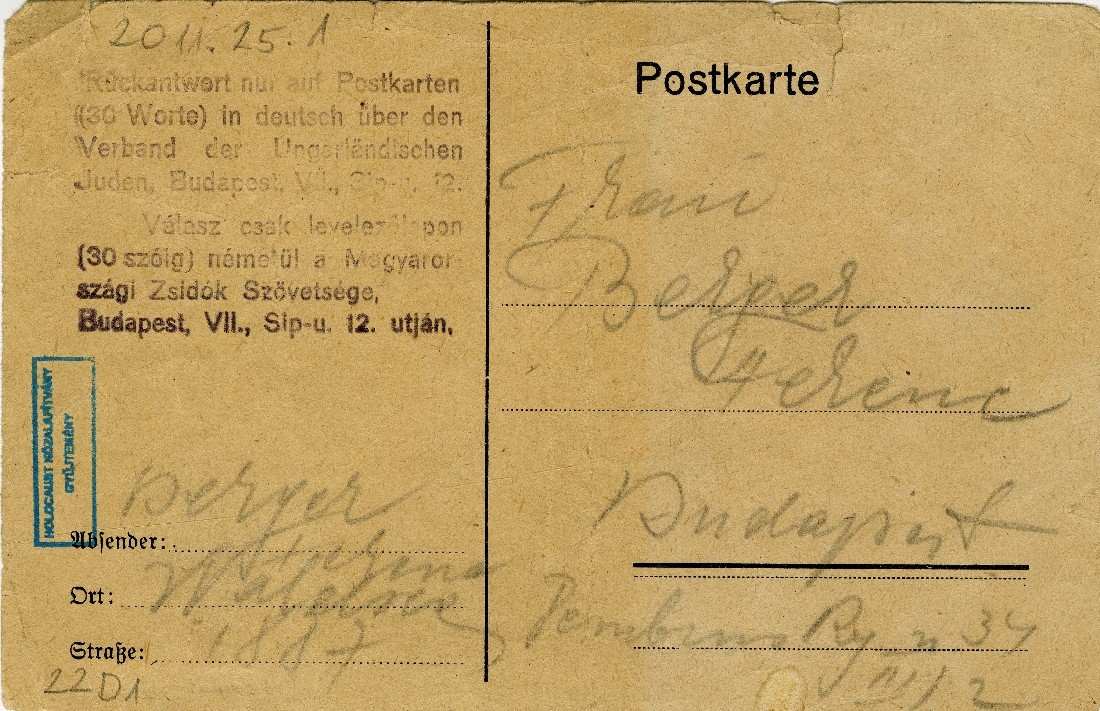 2011.25.1
Rückantwort nur auf Postkarten
(30 Worte) in deutsch über den
Verband der Ungarländischen
Juden, Budapest, VII., Sip-u. 12.
Válasz csak levelezőlapon
(30 szóig) németül a Magyaror-
szági Zsidók Szövetsége,
Budapest, VII., Sip-u. 12. utján,
HOLOCAUST KÖZALAPÍTVÁNY
GYŰJTEMÉNY
Berger
Absender:
Ort: Waldsee
Straße: 1887
22D1
Postkarte
Frau
Berger
Ferenc
Budapest
34